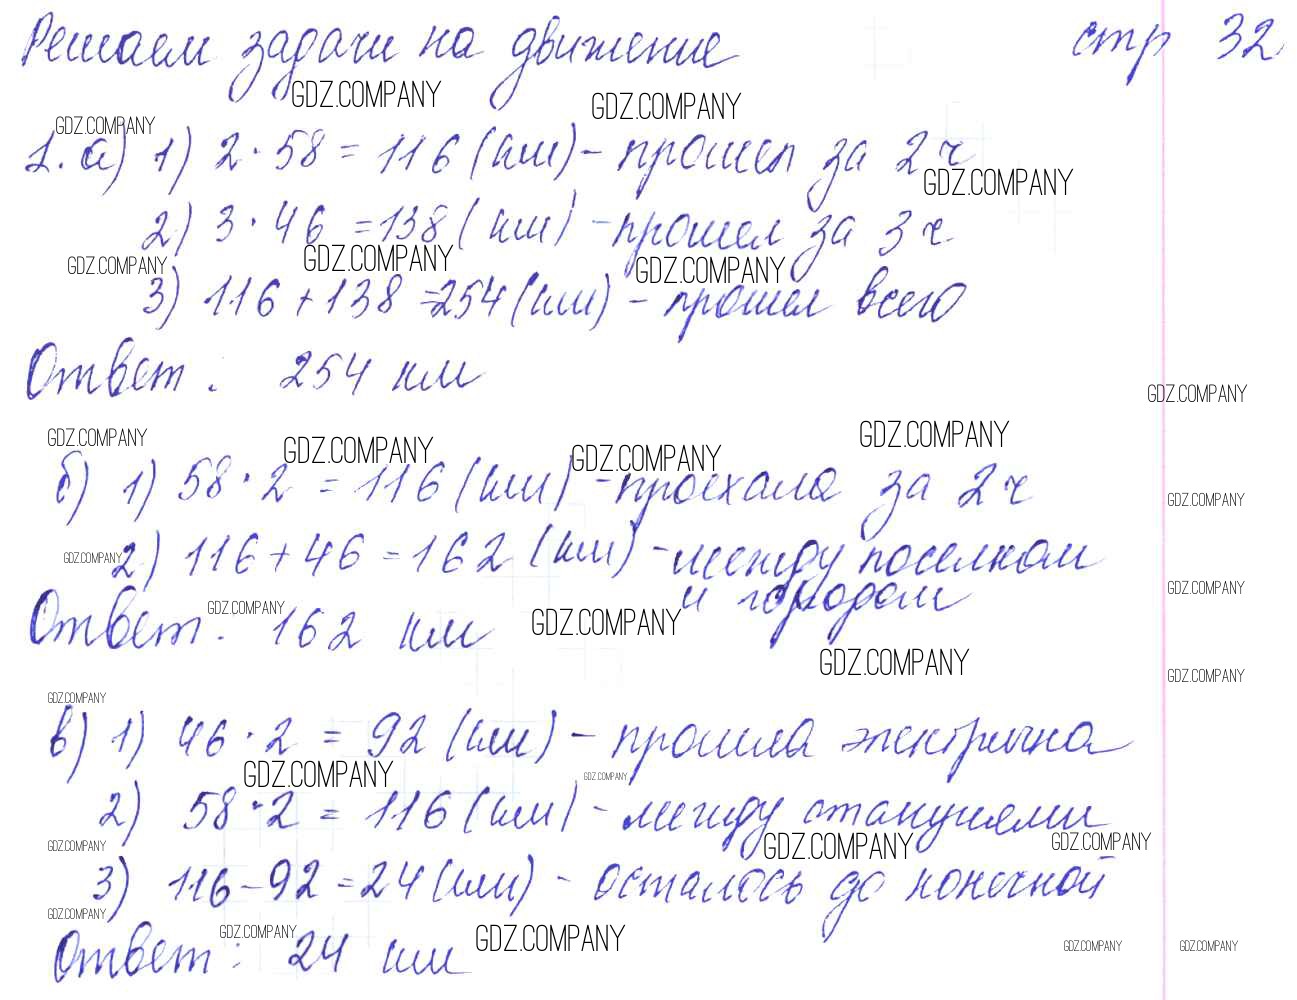 Решаем задачи на движение стр 32
GDZ.COMPANY GDZ.COMPANY
GDZ.COMPANY
1. а) 1) 2 · 58 = 116 (км) - прошел за 2 ч
GDZ.COMPANY
2) 3 · 46 = 138 (км) - прошел за 3 ч.
GDZ.COMPANY GDZ.COMPANY GDZ.COMPANY
3) 116 + 138 = 254 (км) - прошел всего
Ответ: 254 км
GDZ.COMPANY
GDZ.COMPANY GDZ.COMPANY GDZ.COMPANY GDZ.COMPANY
б) 1) 58 · 2 = 116 (км) - проехала за 2 ч
GDZ.COMPANY
2) 116 + 46 = 162 (км) - между поселком
GDZ.COMPANY
и городом
GDZ.COMPANY
Ответ: 162 км
GDZ.COMPANY GDZ.COMPANY
GDZ.COMPANY GDZ.COMPANY
GDZ.COMPANY
в) 1) 46 · 2 = 92 (км) - прошла электричка
GDZ.COMPANY GDZ.COMPANY
2) 58 · 2 = 116 (км) - между станциями
GDZ.COMPANY GDZ.COMPANY GDZ.COMPANY
3) 116 - 92 = 24 (км) - осталось до конечной
GDZ.COMPANY
GDZ.COMPANY GDZ.COMPANY
Ответ: 24 км
GDZ.COMPANY GDZ.COMPANY